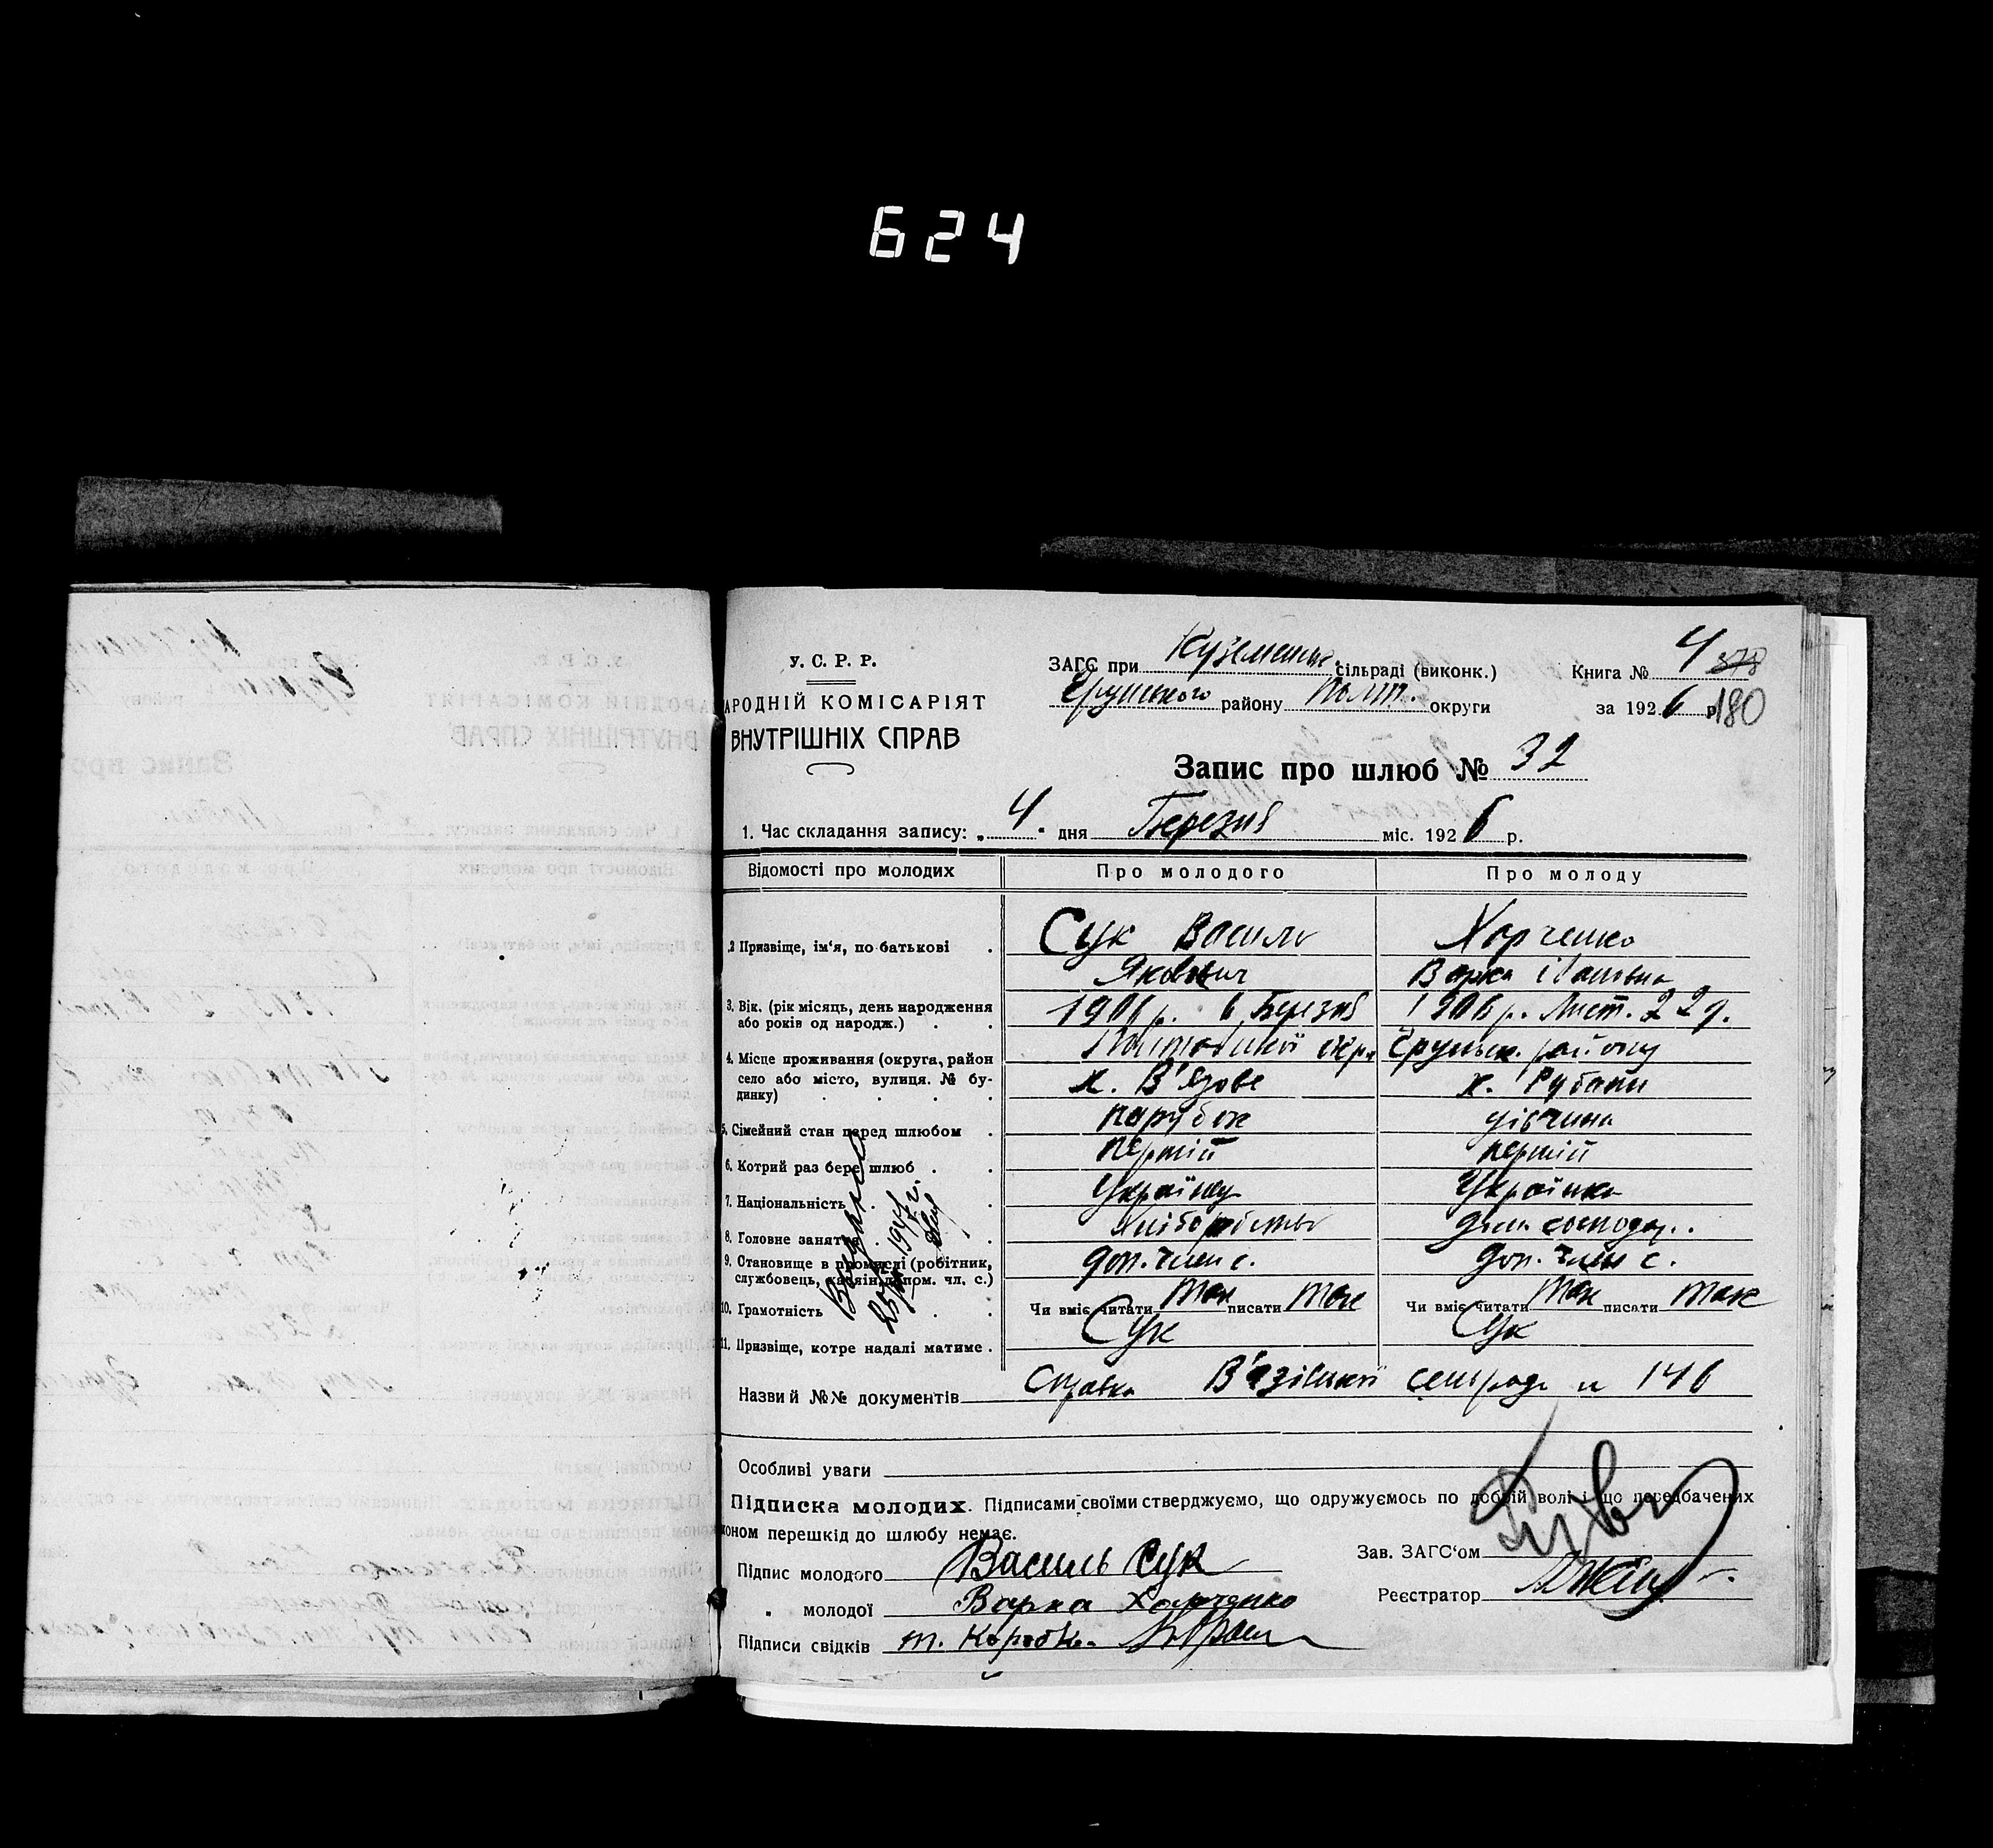 624
У. С. Р. Р.
АРОДНІЙ КОМІСАРІЯТ
ВНУТРІШНІХ СПРАВ
ЗАГС при Куземинс. сільраді (виконк.) Книга № 4 378
Грунського району Полт. округи за 1926 р. 180
Запис про шлюб № 32
1. Час складання запису: „4" дня Березня міс. 1926 р.
Відомості про молодих Про молодого Про молоду
2 Призвіще, ім'я, по батькові . Сук Василь Харченко
Якович Варка Івановна
3. Вік. (рік місяць, день народження або років од народж.) . . 1906 р. 6 Березня 1906 р. Лист. 22 д.
4. Місце проживання (округа, район Полтавської окр. Грунськ. району
село або місто, вулиця. № будинку) . . . . х. В'язове х. Рубани
5. Сімейний стан перед шлюбом . парубок дівчина
6. Котрий раз бере шлюб . . перший перший
7. Національність . . Українець Українка
8. Головне заняття . . Хліборобство дом. господар.
9. Становище в промислі (робітник, службовець, хазяїн, допом. чл. с.) доп. член с. доп. член с.
10. Грамотність . . Чи вміє читати так писати так Чи вміє читати так писати так
11. Призвіще, котре надалі матиме . Сук Сук
25 1947 г.
Назви й №№ документів Справка В'язівської сельради № 146
Особливі уваги
Підписка молодих. Підписами своїми стверджуємо, що одружуємось по добрій волі і що передбачених
коном перешкід до шлюбу немає.
Підпис молодого Василь Сук Зав. ЗАГС'ом
„ молодої Варка Харченко Реєстратор
Підписи свідків т. Коробк.